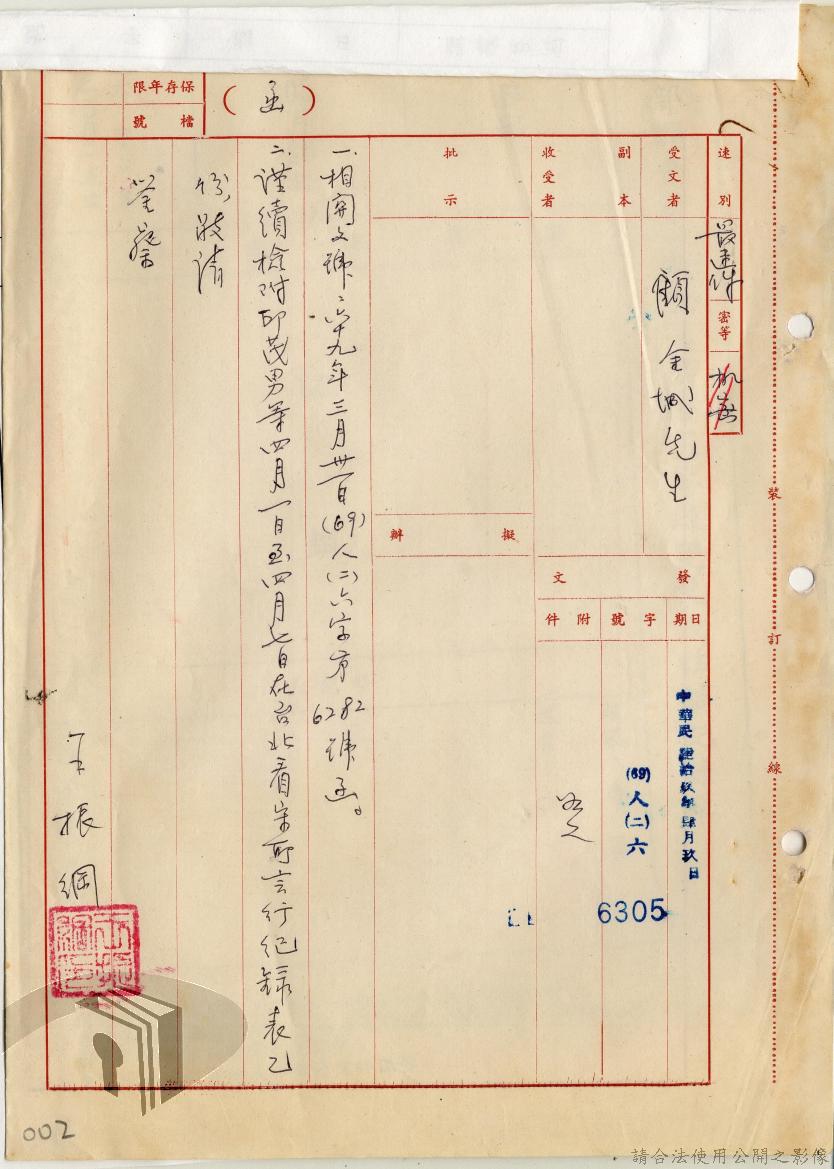 保存年限
檔號
(函)
速別
最速件
密等
機密
受文者
顧金城先生
副本
收受者
批示
擬辦
發文
日期
中華民國陸拾玖年肆月玖日
字號
(69)人(二)六
6305
附件
一、相關文號:六十九年三月卅一日(69)人(二)六字第6282號函。
二、謹續檢附邱茂男等四月一日至四月七日在台北看守所言行紀錄表乙
份,敬請
鑒察
王振綱
裝
訂
線
002
請合法使用公開之影像